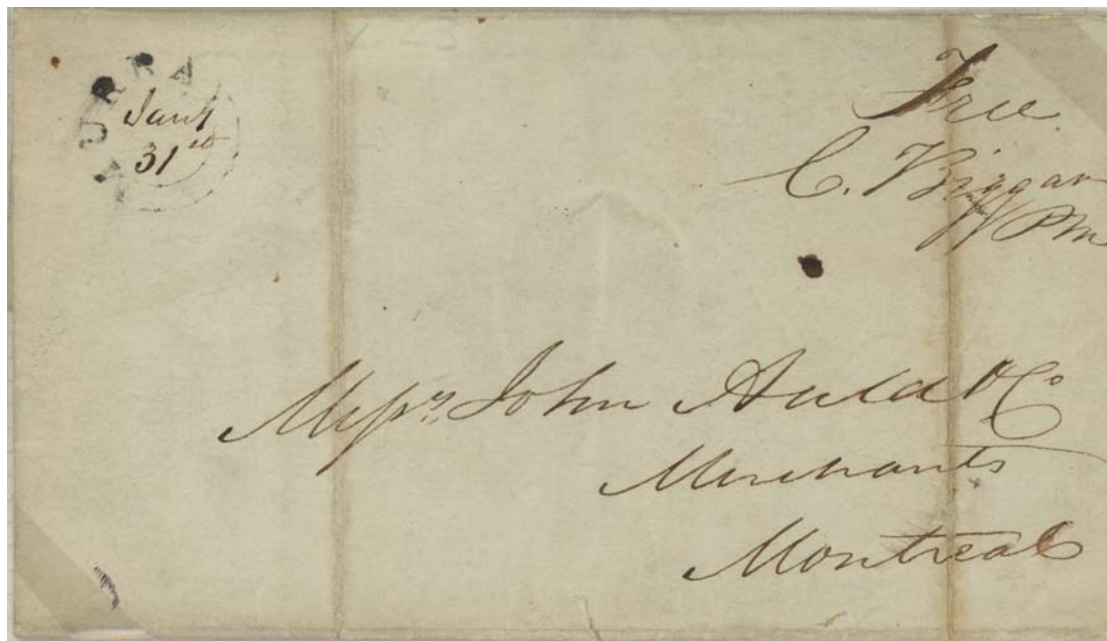 MURRA
Jany
31st
Free
C. Biggar
PM
Messrs. John Auld & Co
Merchants
Montreal